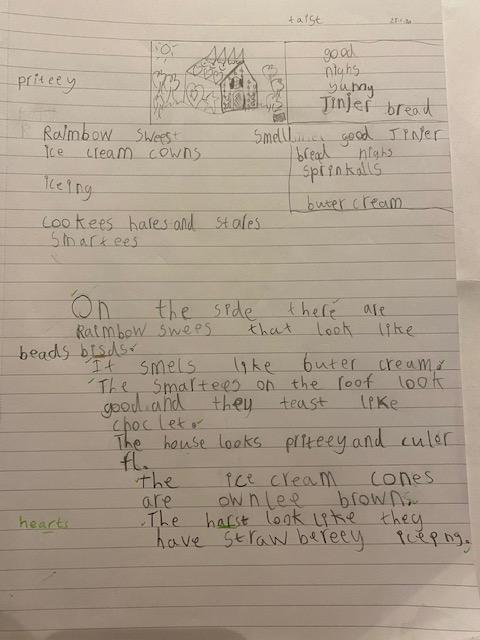 taist
good
nighs
yumy
priteey
Jinjer bread
Raimbow sweest
smell good Jinjer
ice cream cowns
bread nighs
sprinkalls
iceing
buter cream
cookees hares and stares
smartees
On the side there are
Raimbow swees that look like
beads bisds.
It smels like buter cream.
The smartees on the roof look
good and they teast like
choclet.
The house looks priteey and culer
fl.
the ice cream cones
are ownlee brown.
hearts
The harst look like they
have strawbereey icepng.